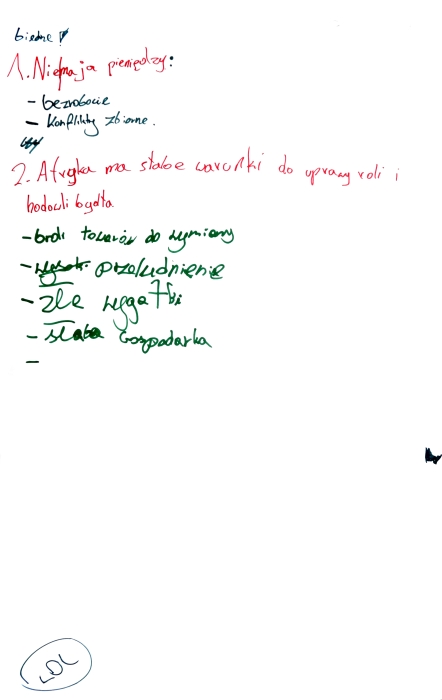 biedne
1. Nie mają pieniędzy:
- bezrobocie
- konflikty zbiorne.
2. Afryka ma słabe warunki do uprawy roli i
hodowli bydła
- brak towarów do wymiany
- przeludnienie
- złe
- słaba Gospodarka
-
LOL